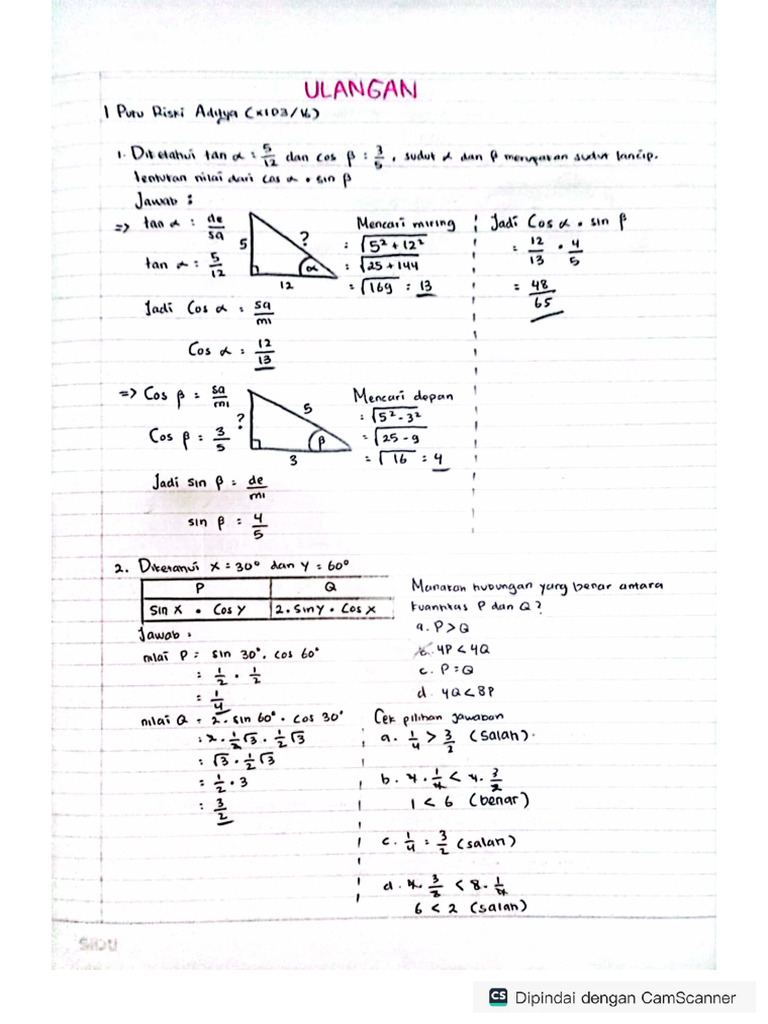 ULANGAN
I Putu Riski Aditya (XID3/16)
1. Diketahui tan α = 5/12 dan cos β = 3/5, sudut α dan β merupakan sudut lancip.
tentukan nilai dari cos α • sin β
Jawab :
=> tan α = de/sa
tan α = 5/12
5
?
α
12
Mencari miring
= √5² + 12²
= √25 + 144
= √169 = 13
Jadi Cos α = sa/mi
Cos α = 12/13
Jadi Cos α • sin β
= 12/13 • 4/5
= 48/65
=> Cos β = sa/mi
Cos β = 3/5
?
5
β
3
Mencari depan
= √5² - 3²
= √25 - 9
= √16 = 4
Jadi sin β = de/mi
sin β = 4/5
2. Diketahui x = 30° dan y = 60°
P Q
Sin x • Cos y 2. Sin y • Cos x
Manakah hubungan yang benar antara
kuantitas P dan Q?
a. P > Q
b. 4P < 4Q
c. P = Q
d. 4Q < 8P
Jawab :
nilai P = sin 30°. cos 60°
= 1/2 • 1/2
= 1/4
nilai Q = 2. sin 60° • cos 30°
= 2. 1/2 √3 . 1/2 √3
= √3 . 1/2 √3
= 1/2 . 3
= 3/2
Cek pilihan jawaban
a. 1/4 > 3/2 (salah).
b. 4 . 1/4 < 4. 3/2
1 < 6 (benar)
c. 1/4 = 3/2 (salah)
d. 4. 3/2 < 8. 1/4
6 < 2 (salah)
SIDU
CS Dipindai dengan CamScanner